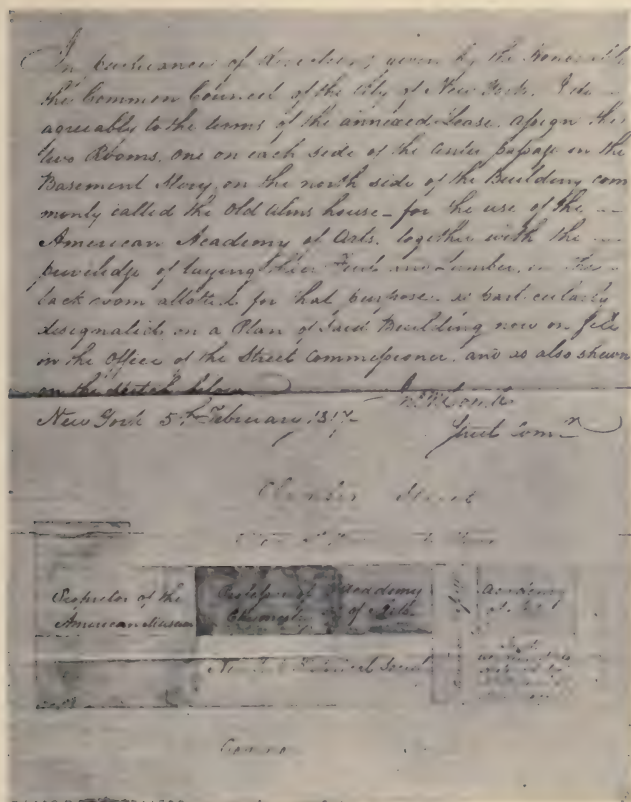 In pursuance of directions given by the Honorable
the Common Council of the City of New York. I do
agreably to the terms of the annexed Lease. assign the
two Rooms. one on each side of the Center passage on the
Basement Story, on the north side of the Building com
monly called the Old Alms house – for the use of the
American Academy of Arts. together with the
priviledge of laying their Fuel and Lumber, in the
back room alloted for that purpose. as particularly
designated on a Plan of said Building now on file
in the Office of the Street Commissioner. and as also shewn
on the sketch below
New York 5th February 1817
Street Comr
Chamber Street
Proprietor of the
American Museum
Professor of
Chemistry
Academy
of Arts
Academy
of
New York Historical Society